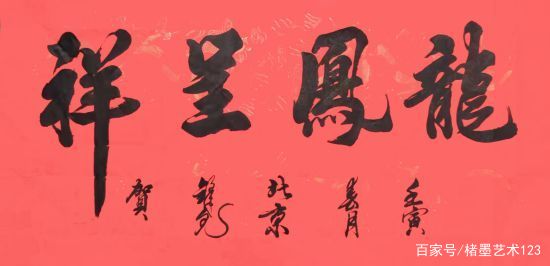 龍鳳呈祥
壬寅 春月 北京 賀
百家号/楮墨艺术123